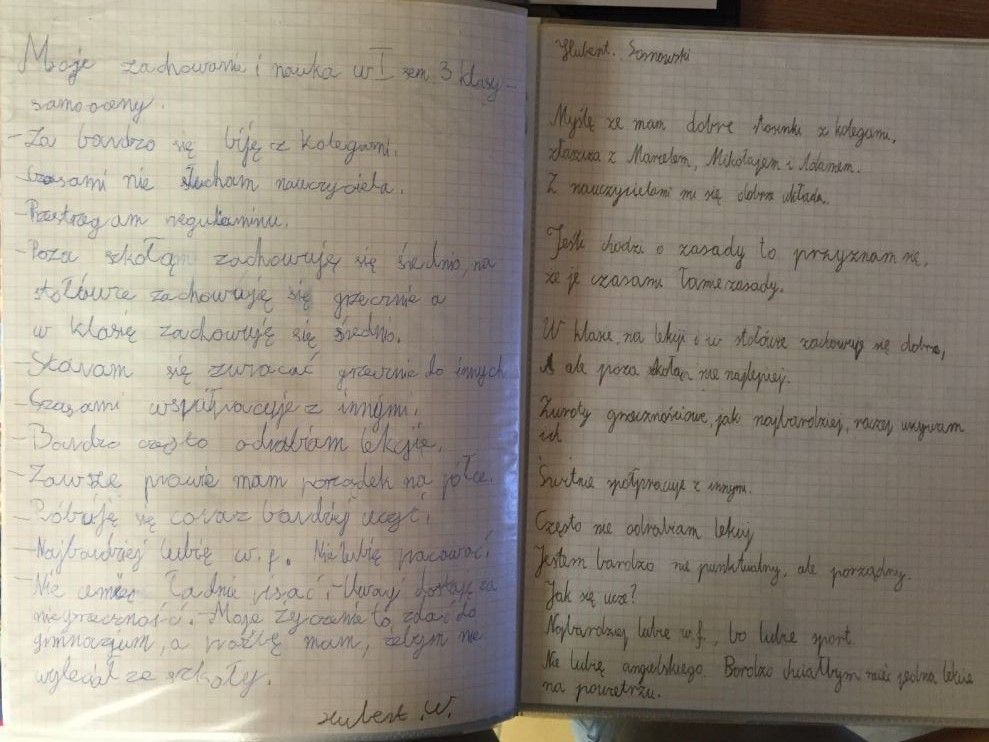 Moje zachowanie i nauka w I sem. 3 klasy –
samooceny.
– Za bardzo się biję z kolegami.
– Czasami nie słucham nauczyciela.
– Przestrzegam regulaminu.
– Poza szkołąm zachowuję się średnio, na
stołówce zachowuję się grzecznie a
w klasię zachowuję się średnio.
– Staram się zwracać grzecznie do innych
– Czasami współpracuje z innymi.
– Bardzo często odrabiam lekcje.
– Zawsze prawie mam porządek na półce.
– Próbuję się coraz bardziej uczyć.
– Najbardziej lubię w.f. Nie lubię pracować.
– Nie umię ładnie pisać. – Uwagi dostaję za
niegrzeczność. – Moje życzenie to, zdać do
gimnazjum, a prośbę mam, żebym nie
wyleciał ze szkoły.
Hubert .W.
Hubert. Sosnowski
Myślę ze mam dobre stosunki z kolegami,
złaszcza z Marcelem, Mikołajem i Adamem.
Z nauczycielami mi się dobrze układa.
Jeśli chodzi o zasady to przyznam się,
ze je czasami łamie zasady.
W klasie, na lekcji i w stołówce zachowuje się dobrze,
ale poza szkołą nie najlepiej.
Zwroty grzecznościowe, jak najbardziej, raczej używam
ich
Świtnie społpracuje z innymi.
Często nie odrabiam lekcji
Jestem bardzo nie punktualny, ale porządny.
Jak się ucze?
Najbardziej lubie w.f., bo lubie sport.
Nie lubię angielskiego. Bardzo chciałbym mieć jedna lekcie
na powietrzu.